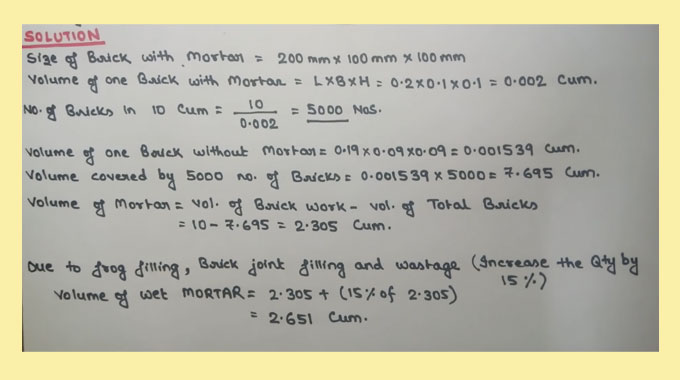 SOLUTION
Size of Brick with Mortar = 200 mm x 100 mm x 100 mm
Volume of one Brick with Mortar = L×B×H = 0.2×0.1×0.1 = 0.002 Cum.
No. of Bricks in 10 Cum = 10 / 0.002 = 5000 Nos.
Volume of one Brick without Mortar = 0.19×0.09×0.09 = 0.001539 Cum.
Volume covered by 5000 no. of Bricks = 0.001539 × 5000 = 7.695 Cum.
Volume of Mortar = Vol. of Brick work - Vol. of Total Bricks
= 10 - 7.695 = 2.305 Cum.
Due to frog filling, Brick joint filling and wastage (Increase the Qty by
15 %)
Volume of wet MORTAR = 2.305 + (15% of 2.305)
= 2.651 Cum.